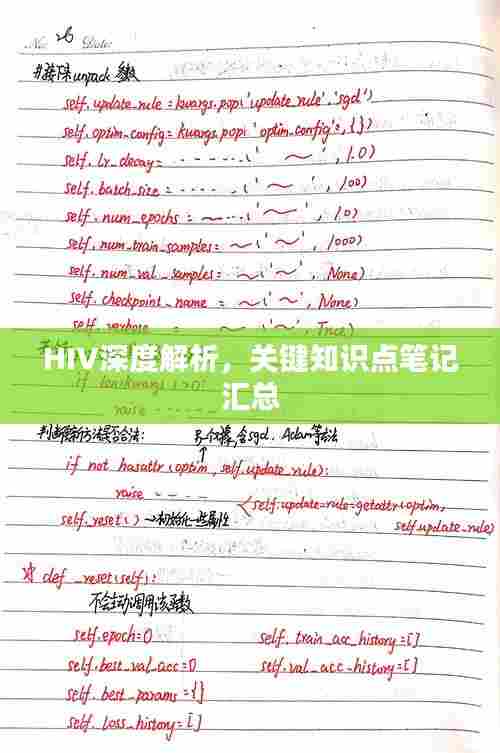 No. 26 Date:
#接下来unpack 参数
self.update_rule = kwargs.pop('update_rule','sgd')
self.optim_config = kwargs.pop('optim_config', {})
self.lr_decay = ------ ('~', 1.0)
self.batch_size = ------ ('~', 100)
self.num_epochs = ~---- ('~', 10)
self.num_train_samples = ~('~', 1000)
self.num_val_samples = ~('~', None)
self.checkpoint_name = ~('~', None)
self.verbose = ('~', True)
HIV深度解析，关键知识点笔记
汇总
if len(kwargs) > 0:
raise -----
判断更新方法是否合法: 另一个模块,含sgd、Adam等方法
if not hasattr(optim, self.update_rule):
raise ----
self.update_rule = getattr(optim,
self.update_rule)
self._reset() → 初始化一些属性
def _reset(self):
不会主动调用该函数
self.epoch=0 self.train_acc_history=[]
self.best_val_acc=0 self.val_acc_history=[]
self.best_params={}
self.loss_history=[]